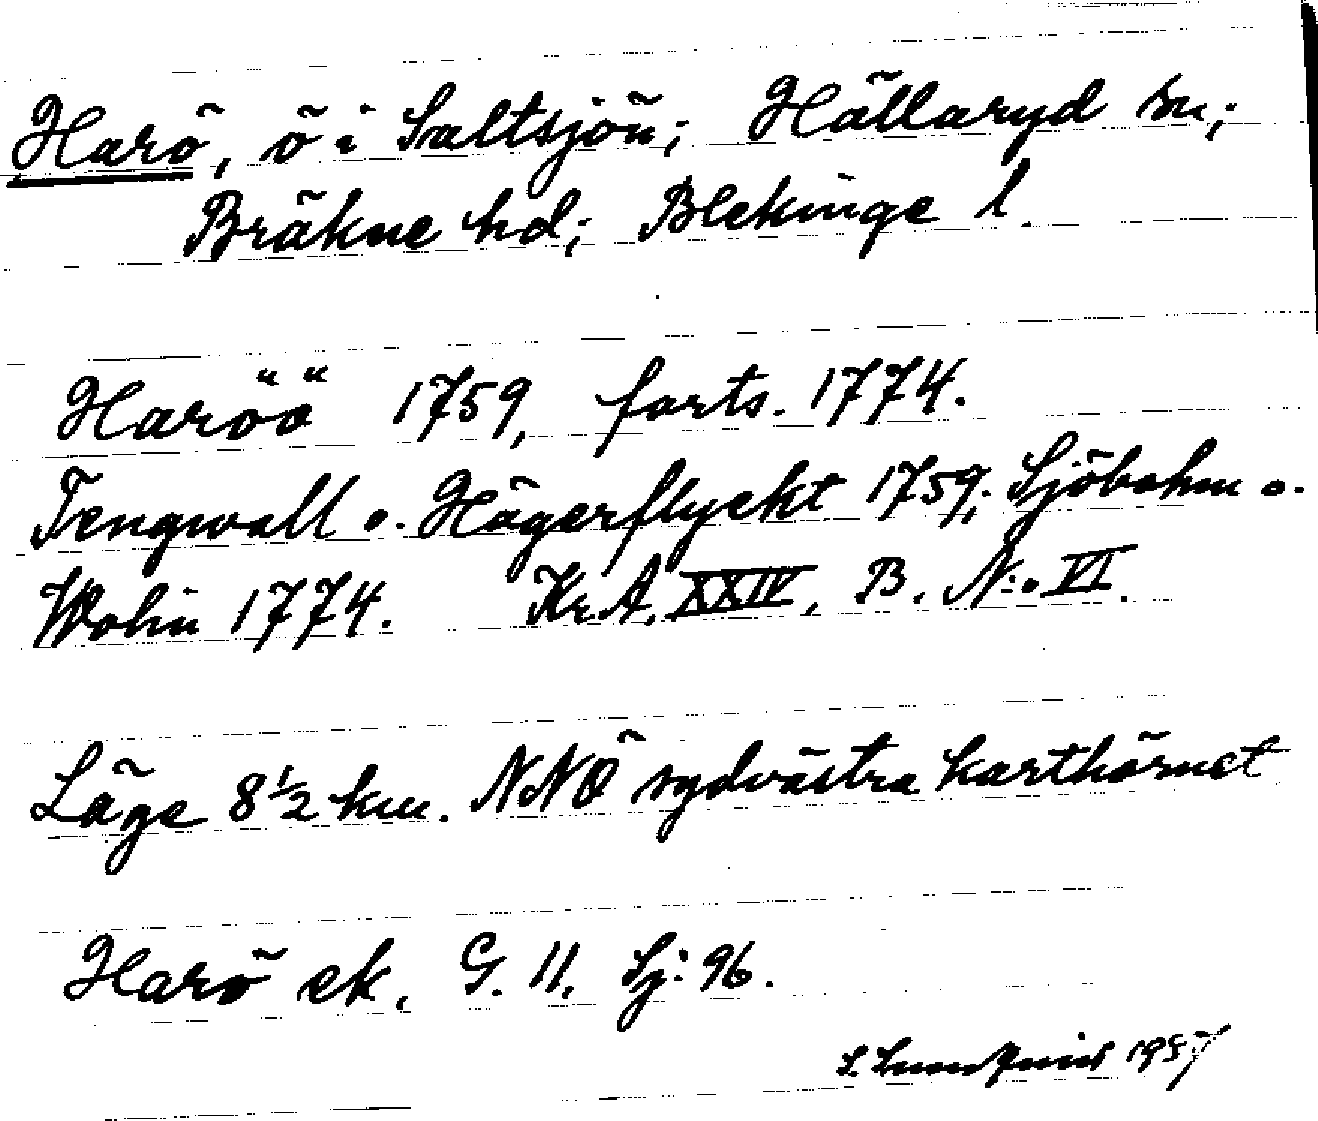 Harö, ö i Saltsjön; Hällaryd sn;
Bräkne hd; Blekinge l.
Haröö 1759, forts. 1774.
Tengwall o. Hägerflyckt 1759; Sjöbohm o.
Wohin 1774. Kr.A. XXIV, B. N:o VI.
Läge 8 1/2 km. NNÖ sydvästra karthörnet
Harö ek. G. 11, Sj: 96.
L. Lundquist 1957